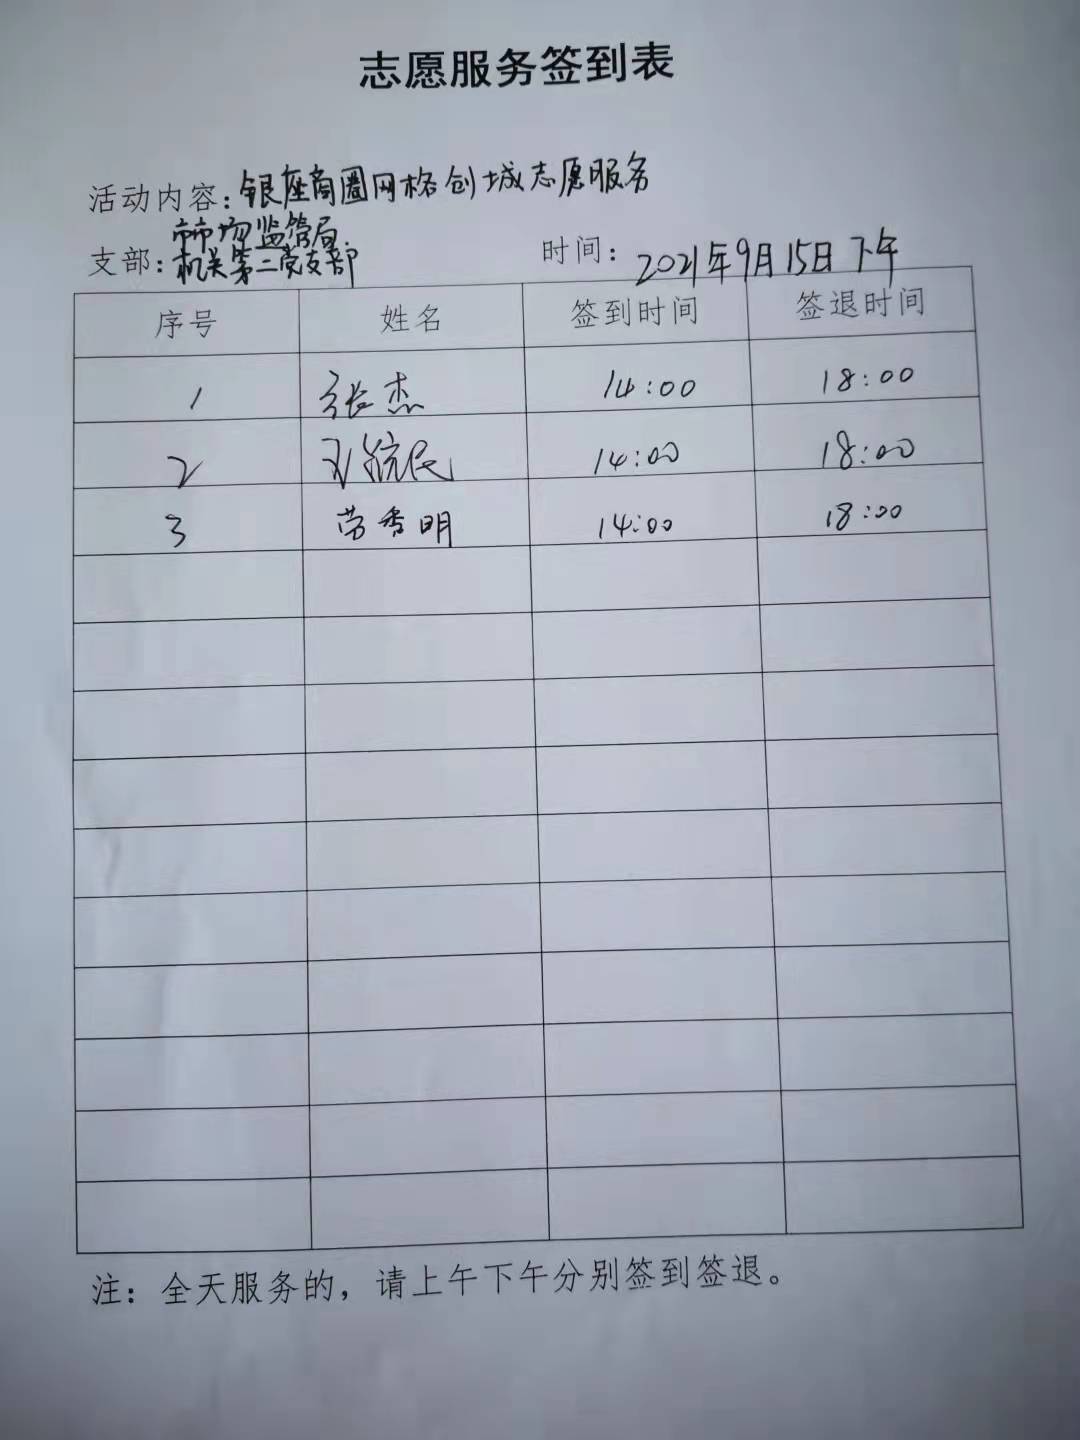 志愿服务签到表
活动内容：银座商圈网格创城志愿服务
市市场监管局
支部：机关第二党支部 时间：2021年9月15日下午
序号 姓名 签到时间 签退时间
1 张杰 14:00 18:00
2 民 14:00 18:00
3 劳香明 14:00 18:00
注：全天服务的，请上午下午分别签到签退。